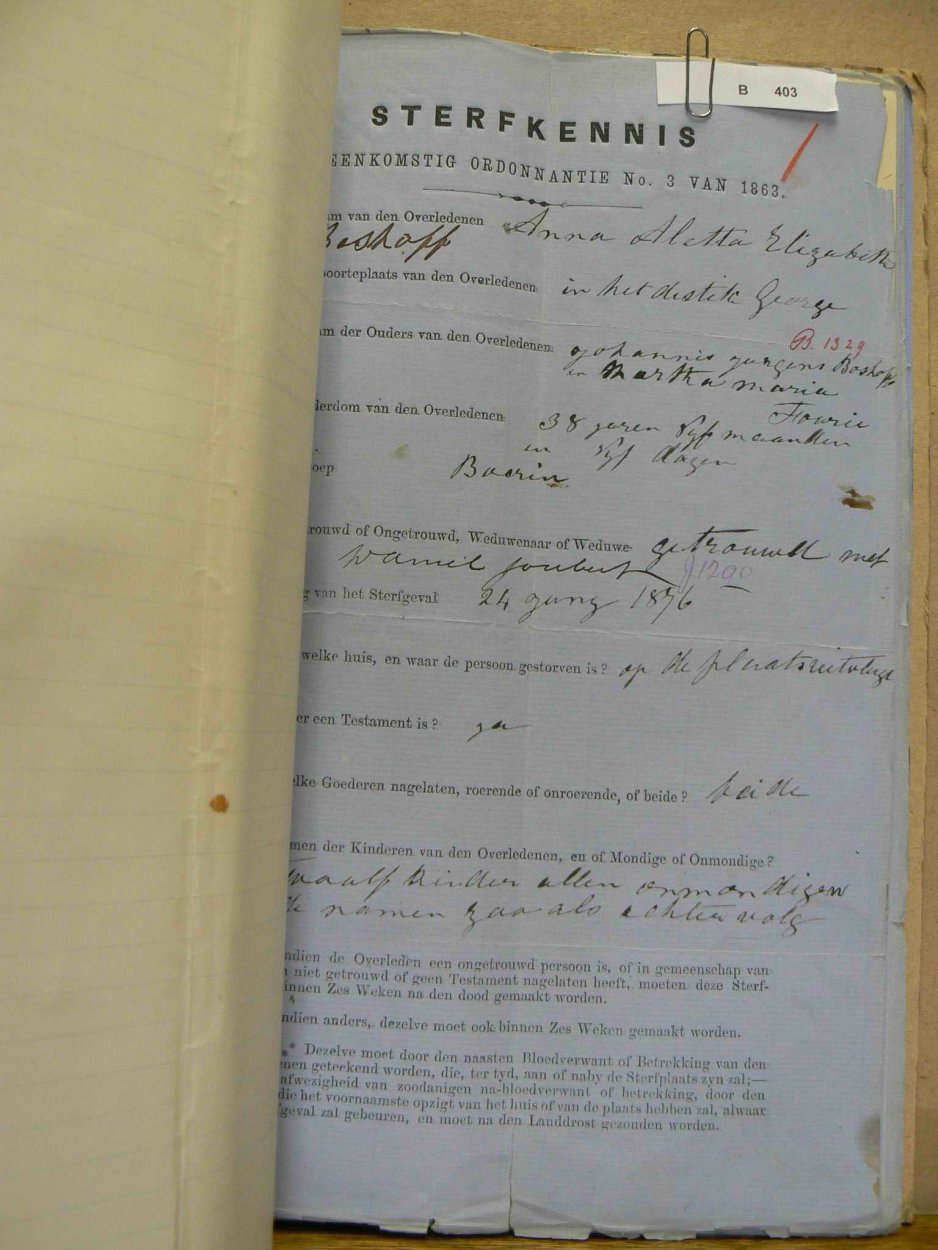 B 403
STERFKENNIS
EENKOMSTIG ORDONNANTIE No. 3 VAN 1863.
am van den Overledenen Anna Aletta Elizabeth
Boshoff
boorteplaats van den Overledenen in het distik George
B 1329
am der Ouders van den Overledenen Johannis Jurgens Boshoff
en Martha Maria
Fourie
derdom van den Overledenen 38 jaren Vyf maanden
en Vyf dagen
oep Boerin
rouwd of Ongetrouwd, Weduwenaar of Weduwe getrouwd met
Daniel Joubert J1290
g van het Sterfgeval 24 juny 1876
welke huis, en waar de persoon gestorven is? op de plaats
er een Testament is? ja
elke Goederen nagelaten, roerende of onroerende, of beide? beide
men der Kinderen van den Overledenen, en of Mondige of Onmondige?
Twaalf kinder allen onmondigen
de namen zoo als achter volg
ndien de Overleden een ongetrouwd persoon is, of in gemeenschap van
niet getrouwd of geen Testament nagelaten heeft, moeten deze Sterf-
innen Zes Weken na den dood gemaakt worden.
ndien anders, dezelve moet ook binnen Zes Weken gemaakt worden.
Dezelve moet door den naasten Bloedverwant of Betrekking van den
enen geteekend worden, die, ter tyd, aan of naby de Sterfplaats zyn zal;—
afwezigheid van zoodanigen na-bloedverwant of betrekking, door den
die het voornaamste opzigt van het huis of van de plaats hebben zal, alwaar
geval zal gebeuren, en moet na den Landdrost gezonden worden.